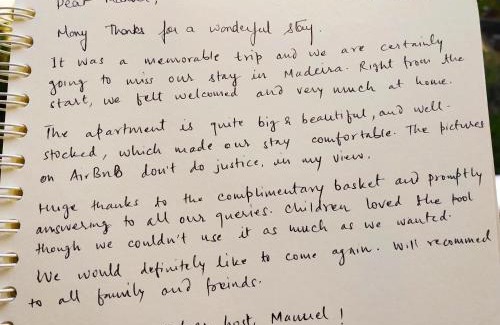 Dear Manuel,
Many Thanks for a wonderful stay.
It was a memorable trip and we are certainly
going to miss our stay in Madeira. Right from the
start, we felt welcomed and very much at home.
The apartment is quite big & beautiful, and well-
stocked, which made our stay comfortable. The pictures
on AirBnB don't do justice, in my view.
Huge thanks to the complimentary basket and promptly
answering to all our queries. Children loved the pool
though we couldn't use it as much as we wanted.
We would definitely like to come again. Will recommed
to all family and freinds.
host, Manuel !